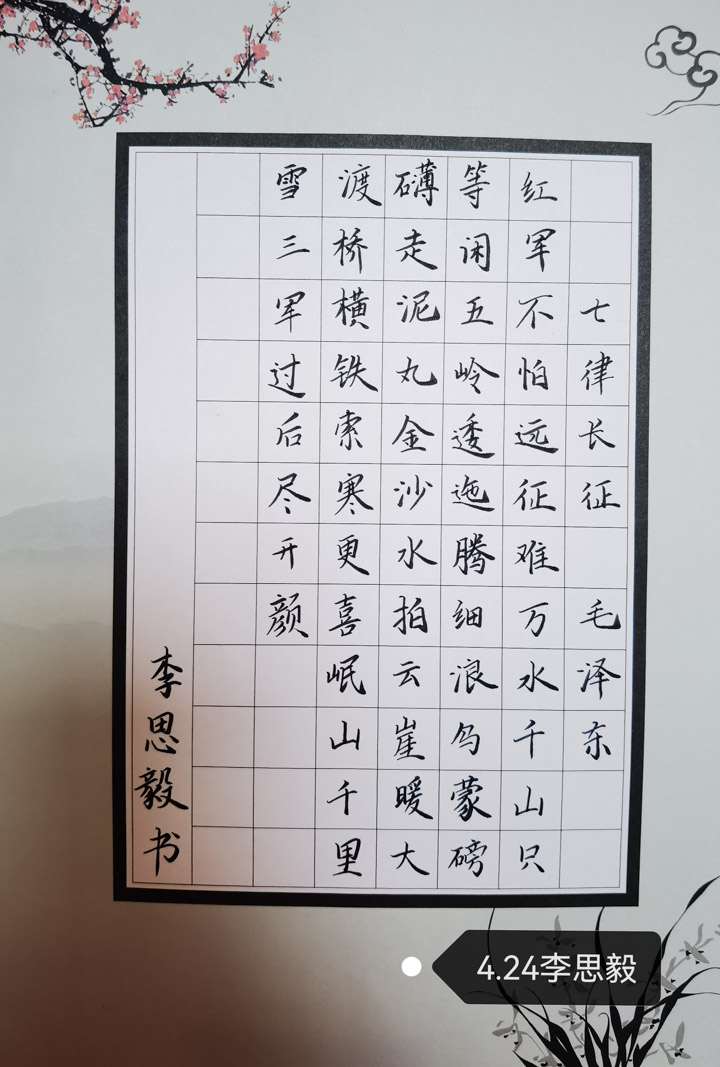 七律长征 毛泽东
红军不怕远征难万水千山只
等闲五岭逶迤腾细浪乌蒙磅
礴走泥丸金沙水拍云崖暖大
渡桥横铁索寒更喜岷山千里
雪三军过后尽开颜
李思毅书
4.24李思毅